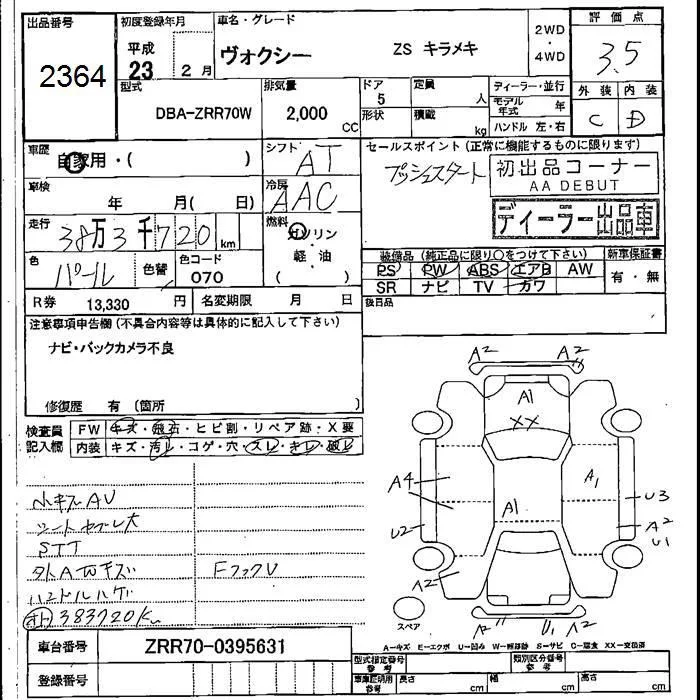 出品番号
2364
初度登録年月
平成
23 2月
車名・グレード
ヴォクシー ZS キラメキ
2WD
・
4WD
評価点
3.5
外装 内装
C D
型式
DBA-ZRR70W
排気量
2,000 CC
ドア
5
形状
定員 人
積載 kg
ディーラー・並行
モデル年式 年
ハンドル 左・右
車歴
自家用・( )
シフト
AT
セールスポイント (正常に機能するものに限ります)
プッシュスタート
初出品コーナー
AA DEBUT
ディーラー出品車
車検
年 月( 日)
冷房
AAC
走行
38万3千720km
燃料
ガソリン
・
軽・油
( )
色
パール
色替
色コード
070
装備品 (純正品に限り○をつけて下さい)
PS PW ABS エアB AW
SR ナビ TV カワ
新車保証書
有・無
R券 13,330 円
名変期限 月 日
後日品
注意事項申告欄 (不具合内容等は具体的に記入して下さい)
ナビ・バックカメラ不良
修復歴 有 (箇所 )
検査員
記入欄
FW キズ・飛石・ヒビ割・リペア跡・X要
内装 キズ・汚レ・コゲ・穴・スレ・キレ・破レ
小キズAU
シートヤブレ大
STT
ハンドルハゲ
383720K
A2 A2
A1
XX
A4
A1
A1
U3
U2
A2
U1
A2
スペア
A2 U1 A2
車台番号 ZRR70-0395631
登録番号
A－キズ E－エクボ U－凹み W－補修跡 S－サビ C－腐食 XX－交換済
型式指定番号
参考
類別区分番号
参考
車庫証明用
参考
長さ cm
幅 cm
高さ cm